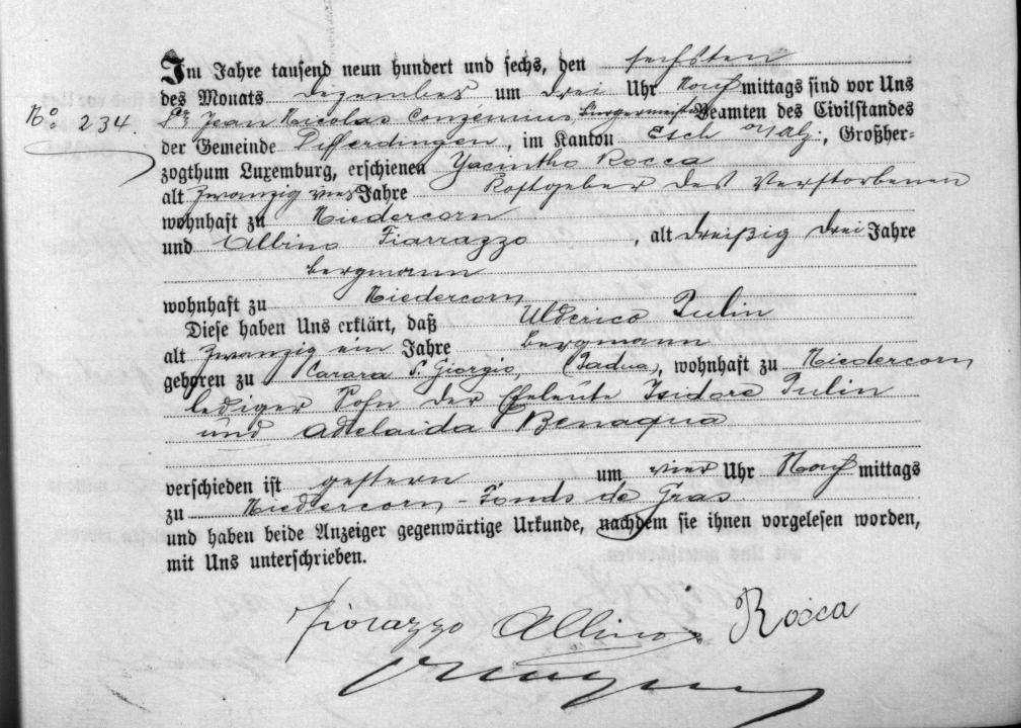 Im Jahre tausend neun hundert und sechs, den sechsten
des Monats Dezember um drei Uhr Nachmittags sind vor Uns
No 234. Jean Nicolas Conzemius, Bürgermeister Beamten des Civilstandes
der Gemeinde Differdingen, im Kanton Esch a/Alz., Großher-
zogthum Luxemburg, erschienen Yacintho Rocca
alt zwanzig vier Jahre Kostgeber des Verstorbenen
wohnhaft zu Niedercorn
und Albino Fiarrazzo, alt dreißig drei Jahre
Bergmann
wohnhaft zu Niedercorn
Diese haben Uns erklärt, daß Ulderico Tulin
alt zwanzig ein Jahre Bergmann
geboren zu Carara S. Giorgio, (Padua), wohnhaft zu Niedercorn,
lediger Sohn der Eheleute Isidore Tulin
und Adelaida Benaqua
verschieden ist gestern um vier Uhr Nachmittags
zu Niedercorn - Fonds de Gras
und haben beide Anzeiger gegenwärtige Urkunde, nachdem sie ihnen vorgelesen worden,
mit Uns unterschrieben.
Fiorazzo Albino Rocca